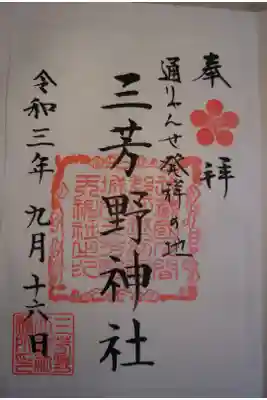 奉拝
通りゃんせ発祥の地
三芳野神社
令和三年九月十六日